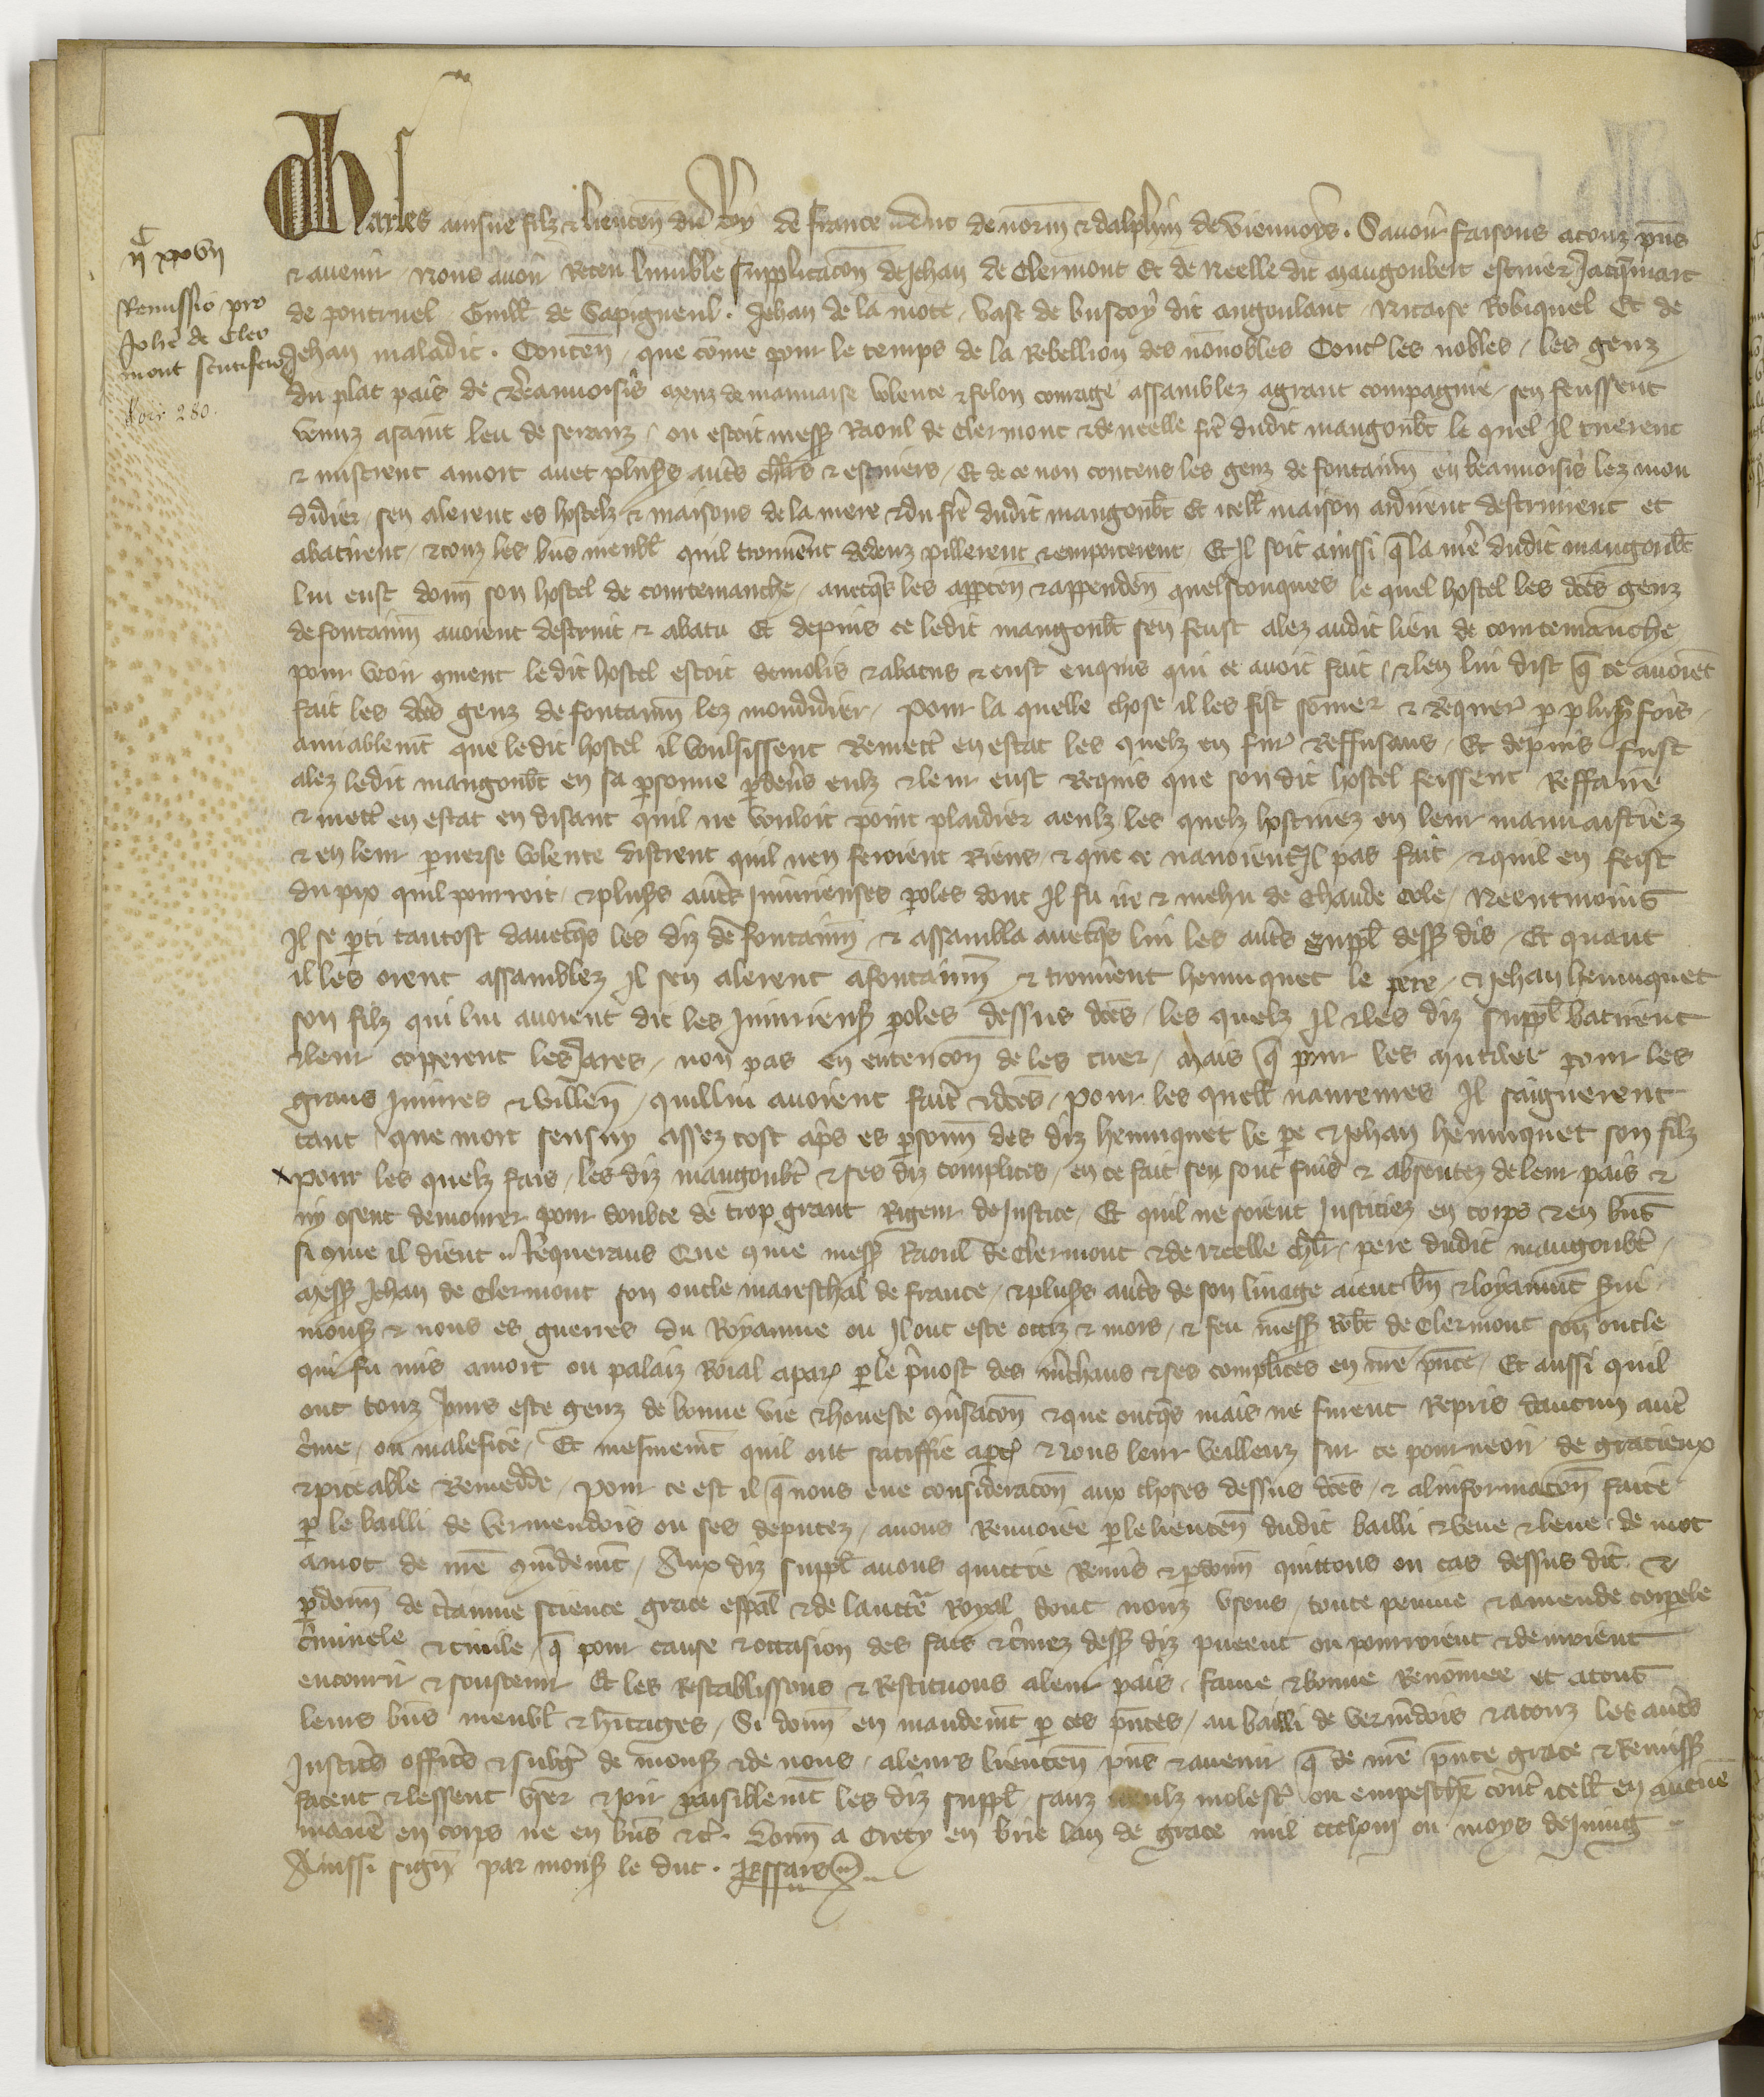 Charles ainsné filz & lieuten̄ du Roy de France duc de norm̄ & dalphin de viennoys. Savoir faisons atouz p̄ns
& avenir nous avoir Receu lumble supplicacōn de Jehan de Clermont Et de neelle dit maugoubert escuier Jaq̄mart
de pontruel Guill' de Sapigneul. Jehan de la mote. vast de buscoy dit angoulant Nicaise Robiquel Et de
Jehan maladit. Conten̄ que cōme pour le temps de la Rebellion des nōnobles Cont' les nobles / les genz
du plat païs de Beauvoisis meuz de mauvaise volente & felon courage assamblez agrant compagnie sen feussent
venuz asaint leu de seranz / ou estoit mess' Raoul de Clermont & de neelle fre' dudit maugoub't le quel Il tuerent
& mistrent amort avec plus's autr's ch'l'rs & escuiers / Et de ce non contens les genz de fontainn̄ en beauvoisis lez mon
didier / sen alerent es hostelz & maisons de la mere & du fre' dudit maugoub't Et icell' maison ardirent destruirent et
abatirent / & touz les biēs meubl' quil trouverent dedenz pillerent & emporterent / Et Il soit ainssi q̄ la me're dudit maugoub't
lui eust donn̄ son hostel de courtemanche / avecq's les apparten̄ & appenden̄ quelsconques le quel hostel les dc̄es genz
de fontainn̄ avoient destruit & abatu Et depuis ce ledit maugoub't sen feust alez audit lieu de courtemanche
pour veoir 9ment ledit hostel estoit demolis & abatus & eust enquis qui ce avoit fait / & len lui dist q̄ ce avoiēt
fait les dc̄es genz de fontainn̄ lez mondidier / pour la quelle chose il les fist sōmer & Requer' p plus's fois /
amiablem̄t que ledit hostel il voulsissent Remett' en estat les quelz en fur' Reffusans / Et depuis fust
alez ledit maugoub't en sa p̄sonne p̄devers eulz & leur eust Requis que son dit hostel feissent Reffaire
& mett' en estat en disant quil ne vouloit point plaidier aeulz les quelz hostinez en leur mauvaistiez
& en leur p̄verse volente distrent quil nen feroient Riens / & que ce navoient Il pas fait / & quil en feist
du pix quil pourroit / & plus's autr's Injurieuses p̄oles dont Il fu ire & mehu de chaude cole / Neentmoins
Il se p̄ti tantost davecq's les diz de fontainn̄ & assambla avecq's lui les autr's suppl' dess' dis / Et quant
il les orent assamblez Il sen alerent afontainn̄ & trouverent hennuquet le pere / & Jehan hennuquet
son filz qui lui avoient dit les Injurieus' p̄oles dessus dc̄es / les quelz Il & les diz suppl' batirent
& leur copperent les Jares / non pas en entencōn de les tuer / mais q̄ pour les mutiler pour les
grans Injures & villen̄ / quil lui avoient fait' & dc̄es / pour les quell' navreures Il saignerent
tant que mort sensuy assez tost ap's es p̄sonn̄ des diz hennuquet le pe' & Jehan hennuquet son filz
pour les quelz fais / les diz maugoub't & ses diz complices / en ce fait sen sont fuis & absentez de leur pais &
ny osent demourer pour doubte de trop grant Rigeur de Justice / Et quil ne soient Justiciez en corps & en biēs
si 9me il dient Requerans Que 9me mess' Raoul de Clermont & de neelle ch'l'r / pere dudit maugoub't /
mess' Jehan de Clermont son oncle mareschal de france / & plus's autr's de son linage aient bn̄ & loyaum̄t s'vi
mons' & nous es guerres du Royaume ou Il ont este occiz & mors / & feu mess' Rob't de Clermont son oncle
qui fu mis amort ou palaiz Roial apar' p le p'vost des m'chans & ses complices en nr̄e p̄nce / Et aussi quil
ont touz Jours este genz de bonne vie & honeste 9v'sacōn & que oncq's mais ne furent Repris daucun aut'
c'me / ou malefice / Et mesmem̄t quil ont satiffie ap̄t' & vous leur veillenz sur ce pourveoir de gracieux
& piteable Remedde / pour ce est il q̄ nous eue consideracōn aux choses dessus dc̄es & alinformacōn faite
p le bailli de vermendois ou ses deputez / avons Renvoiee p le lieuten̄ dudit bailli & veue & leue de mot
amot de nr̄e 9mandem̄t / Aux diz suppl' avons quictie Remis & p̄donn̄ quittons ou cas dessus dit &
p̄donn̄ de c'taine science grace esp̄al & de lauct'e Royal dont nouz usons / toute peinne & amende corp̄ele
c'minele & civile / q̄ pour cause & occasion des fais & c'mez dess' diz pueent ou pourroient & devroient
encourir & soustenir Et les Restablissons & Restituons aleur pais / fame & bonne Renōmee et atouz
leurs biēs meubl' & h'itages / Si donn̄ en mandem̄t p ces p̄ntes / au bailli de verm̄dois & atouz les autr's
Justic's offic's & subg' de mons' & de nous / aleurs lieuten̄ p̄ns & avenir q̄ de nr̄e p̄nte grace & Remiss'
facent & lessent user & joir paisiblem̄t les diz suppl' sanz molest' ou empesch' cont' icell' en aucune
manie' en corps ne en biēs &c'. Donn̄ a Crecy en brie lan de grace mil ccclviij ou moys de Juing
Ainssi sign̄ par mons' le duc.
ijC xxvij
Remissio pro
Joh'e de Cler
mont scutifero
voir 280.